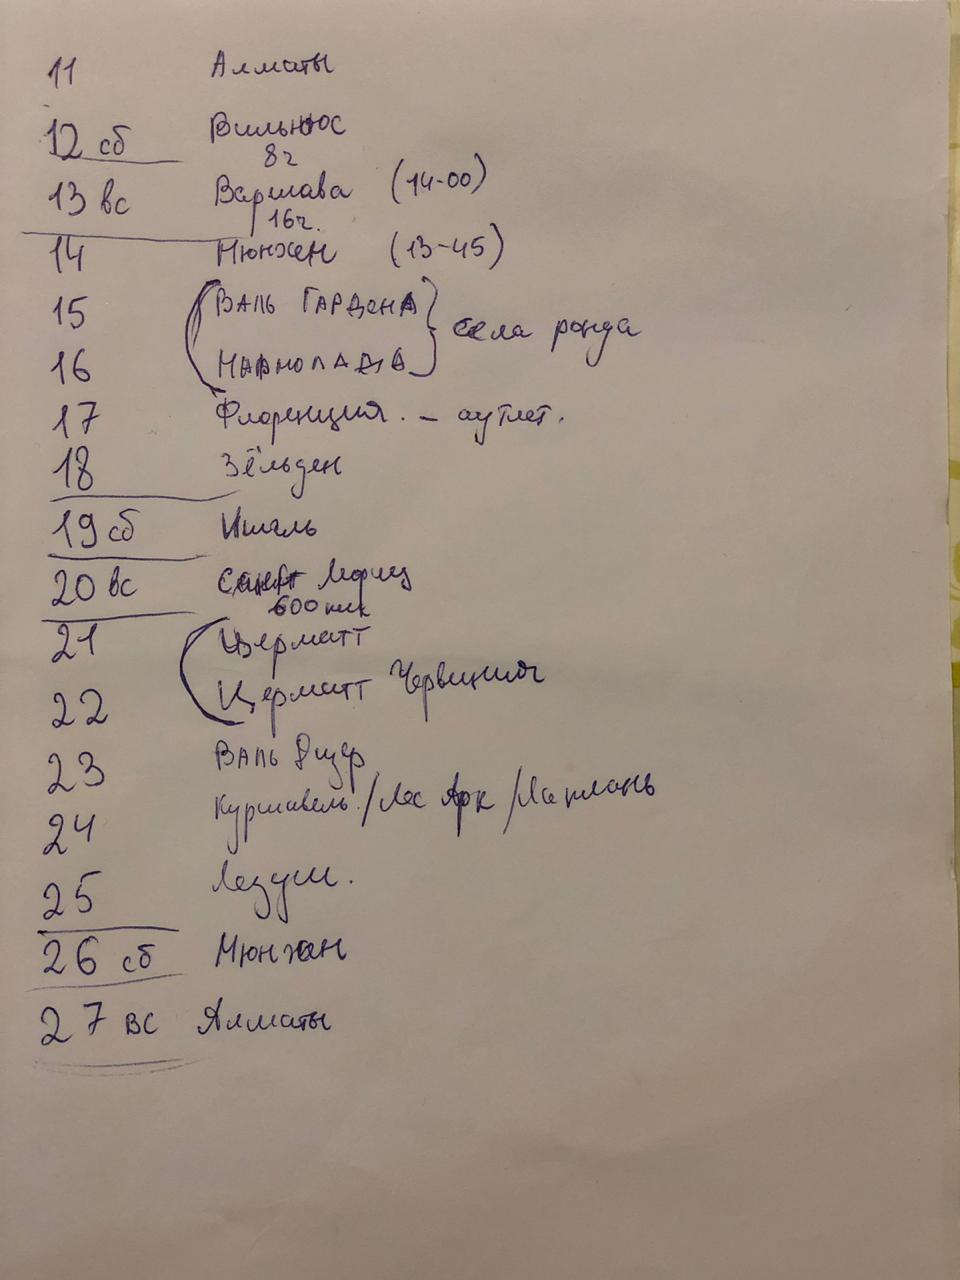 11 Алматы
12 сб Вильнюс
8ч
13 вс Варшава (14-00)
16ч.
14 Мюнхен (13-45)
15 Валь Гардена
села ронда
16 Мармолада
17 Флоренция. – аутлет.
18 Зёльден
19 сб Ишгль
20 вс Санкт Мориц
600 км
21 Церматт
22 Церматт Червиния
23 Валь Дизер
24 Куршавель/Лес Арк/Ла плань
25 Лезуш.
26 сб Мюнхен
27 вс Алматы